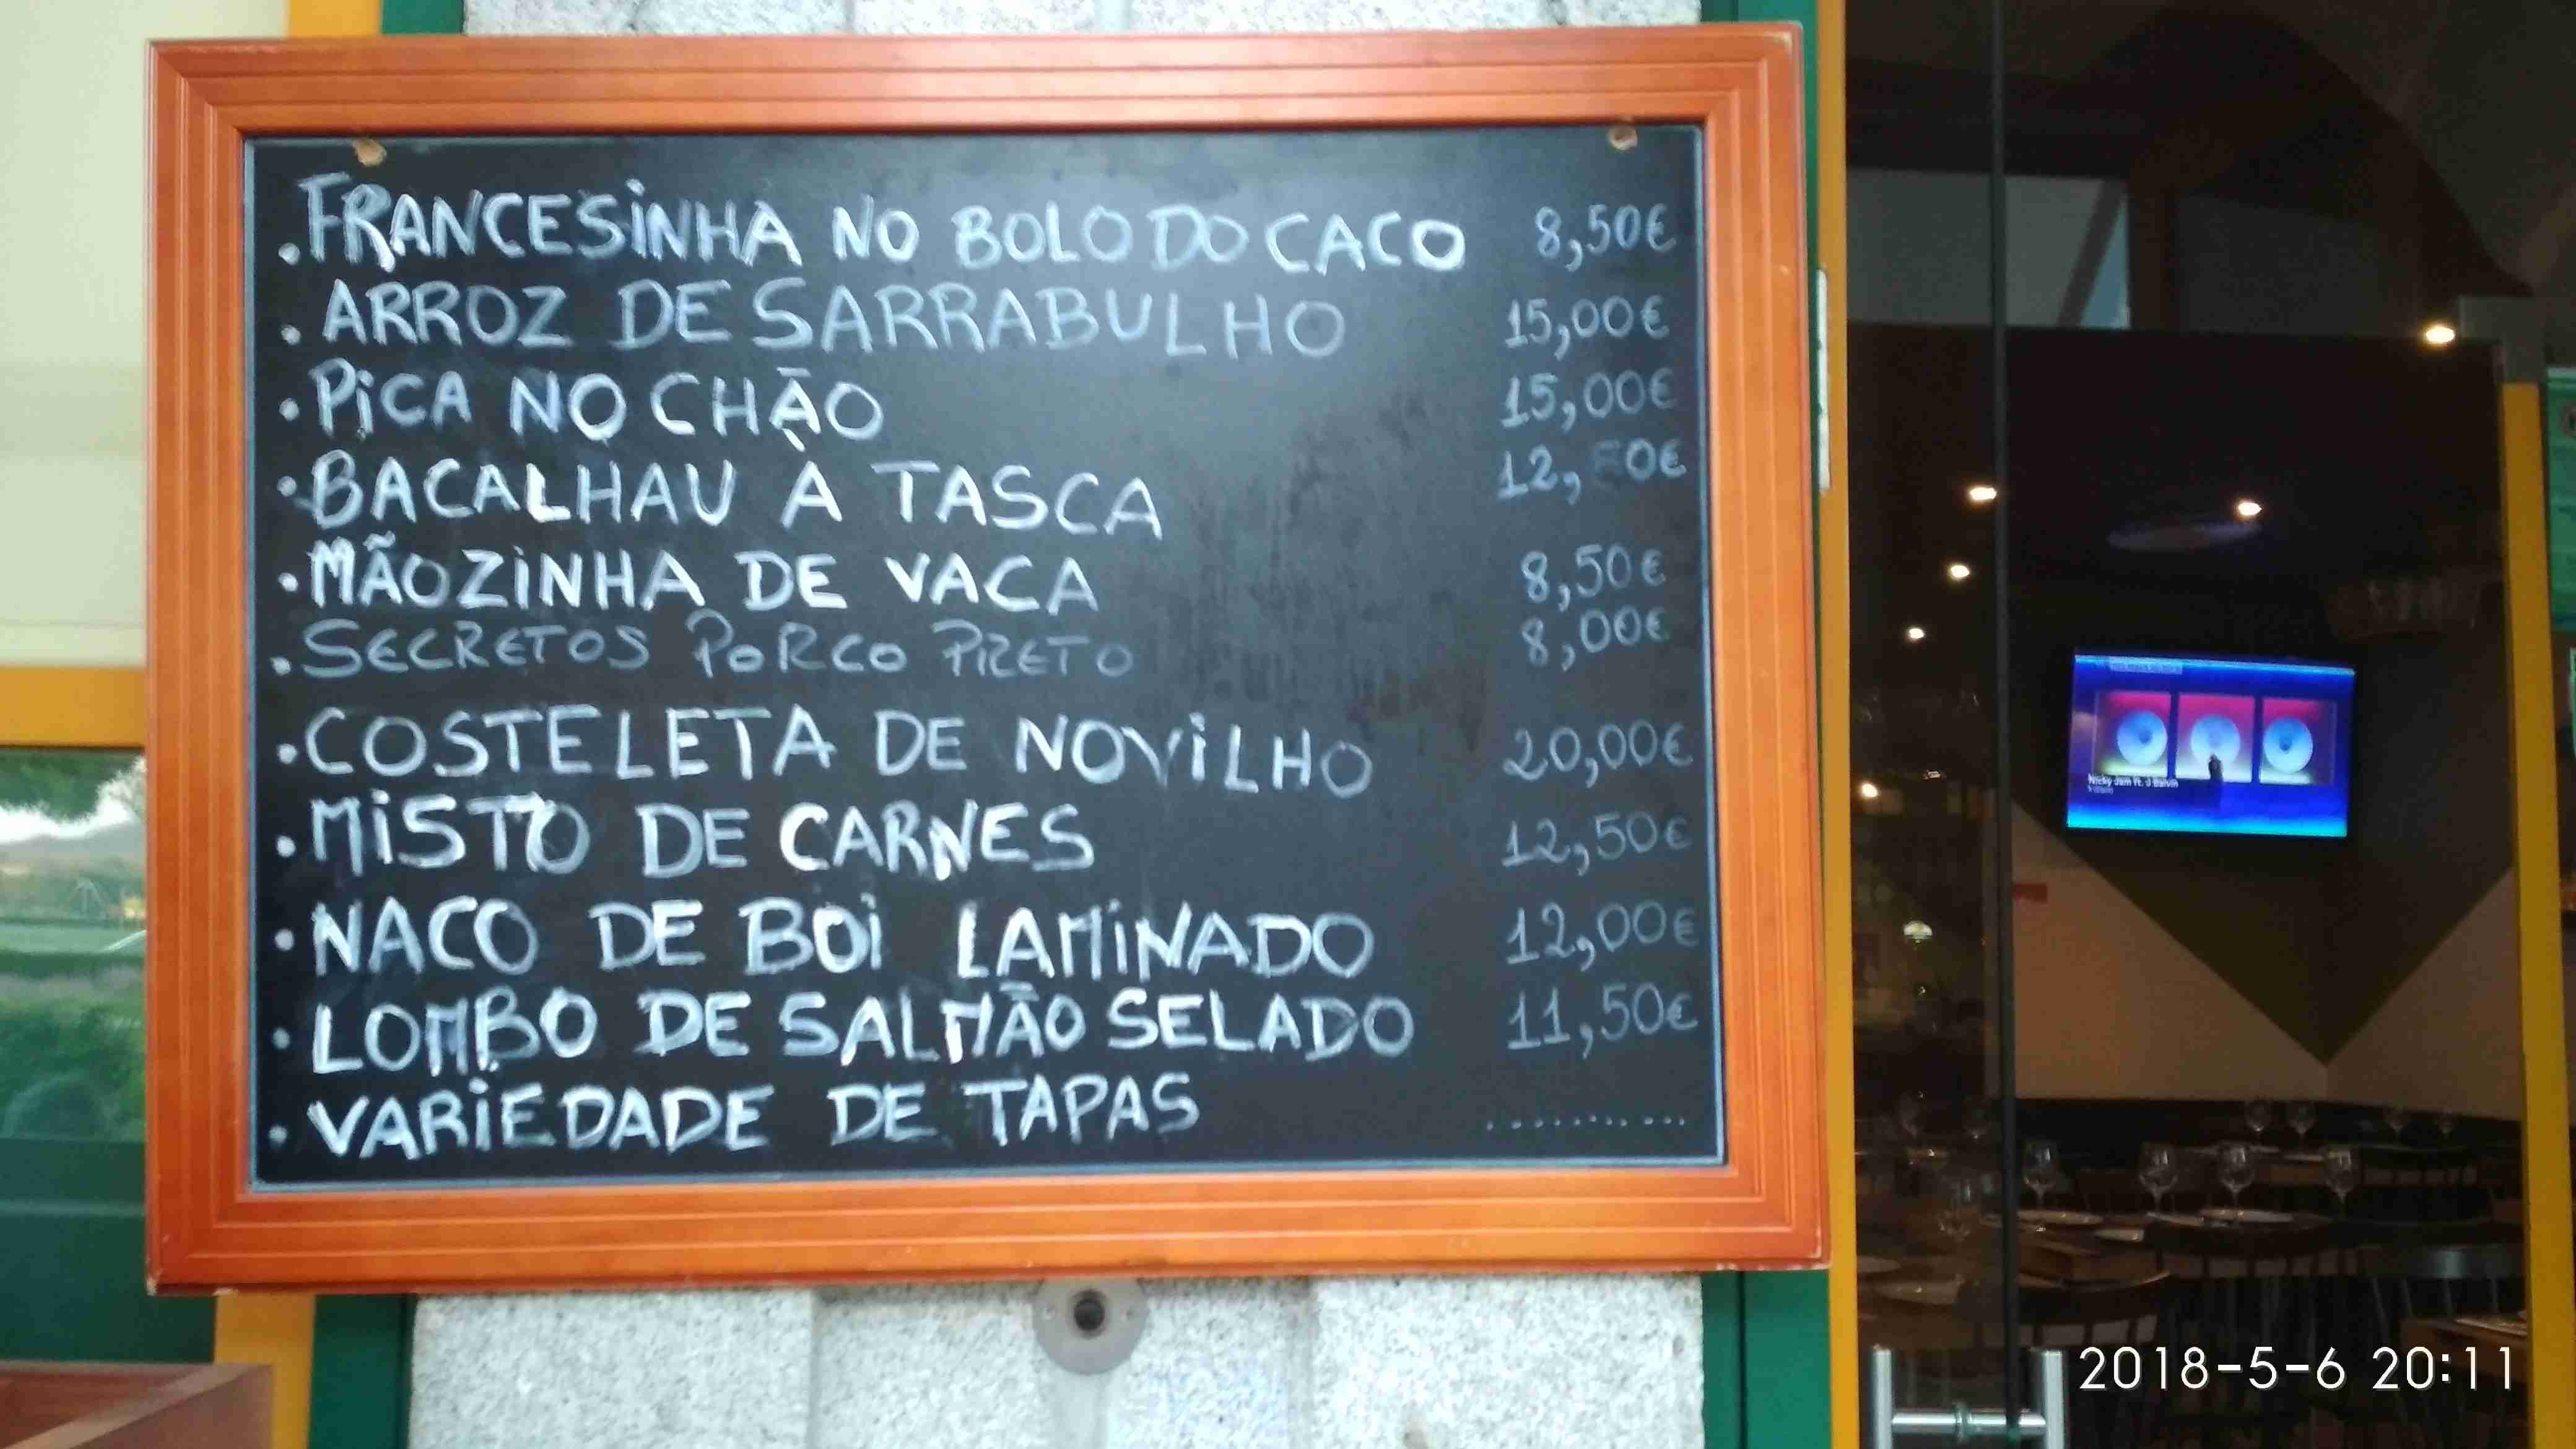 . FRANCESiNHA NO BOLO DO CACO 8,50€
. ARROZ DE SARRABULHO 15,00€
. PiCA NO CHÃO 15,00€
. BACALHAU À TASCA
. MÃOZiNHA DE VACA 8,50€
. SECRETOS PORCO PRETO 8,00€
. COSTELETA DE NOViLHO 20,00€
. MiSTO DE CARNES 12,50€
. NACO DE BOi LAMiNADO 12,00€
. LOMBO DE SALMÃO SELADO 11,50€
. VARiEDADE DE TAPAS ...........
Nicky Jam ft. J Balvin
2018-5-6 20:11